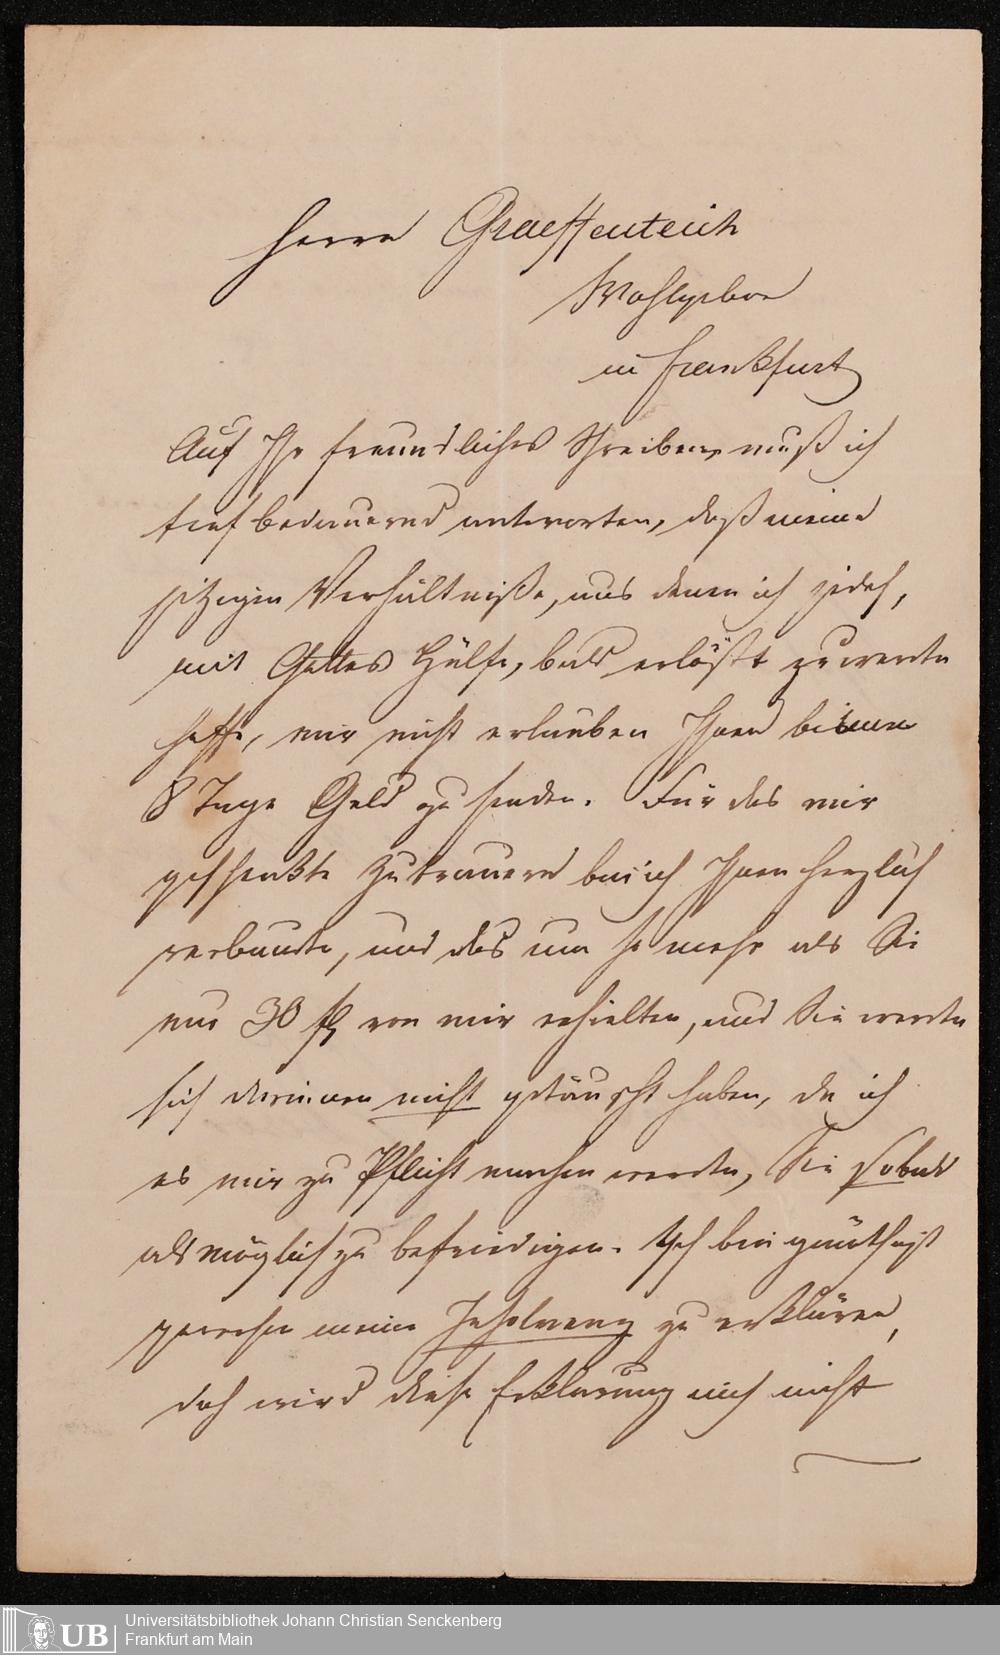 Herrn Graeffenteich
Wohlgeborn
in Frankfurt
Auf Ihr freundliches Schreiben, muß ich
tief bedauernd antworten, daß meine
jetzigen Verhältniße, aus denen ich jedoch,
mit Gottes Hülfe, bald erlößt zu werden
hoffe, mir nicht erlauben Ihnen binnen
8 Tage Geld zu senden. Für das mir
geschenkte Zutrauen bin ich Ihnen herzlich
verbunden, und das um so mehr als Sie
nur 30 fl von mir erhielten, und Sie werden
sich darinnen nicht getäuscht haben, da ich
es mir zu Pflicht machen werden, Sie sobald
als möglich zu befriedigen. Ich bin genöthigt
gewesen meine Insolvenz zu erklären,
doch wird diese Erklärung mich nicht
Universitätsbibliothek Johann Christian Senckenberg
Frankfurt am Main
UB